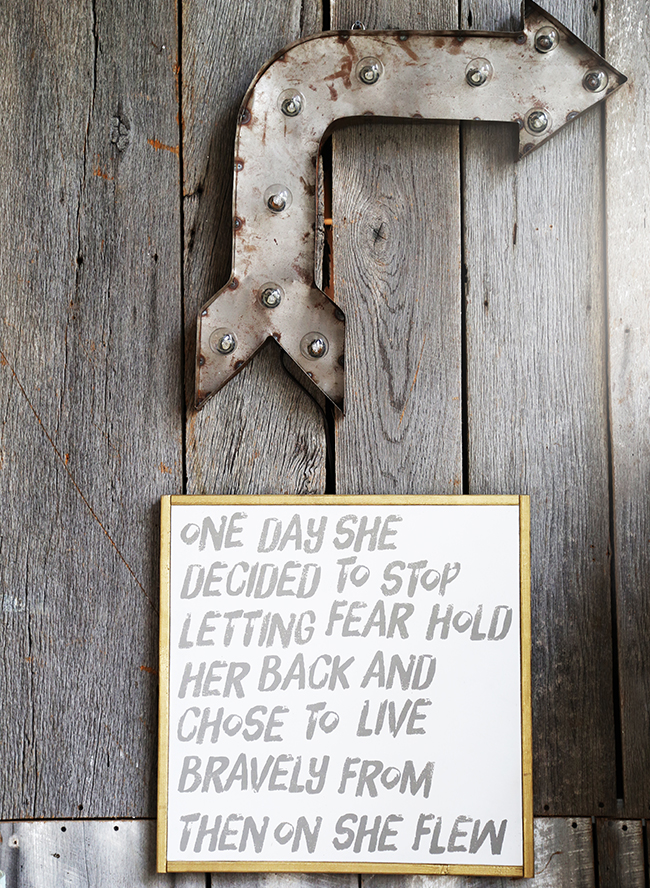 ONE DAY SHE
DECIDED TO STOP
LETTING FEAR HOLD
HER BACK AND
CHOSE TO LIVE
BRAVELY FROM
THEN ON SHE FLEW